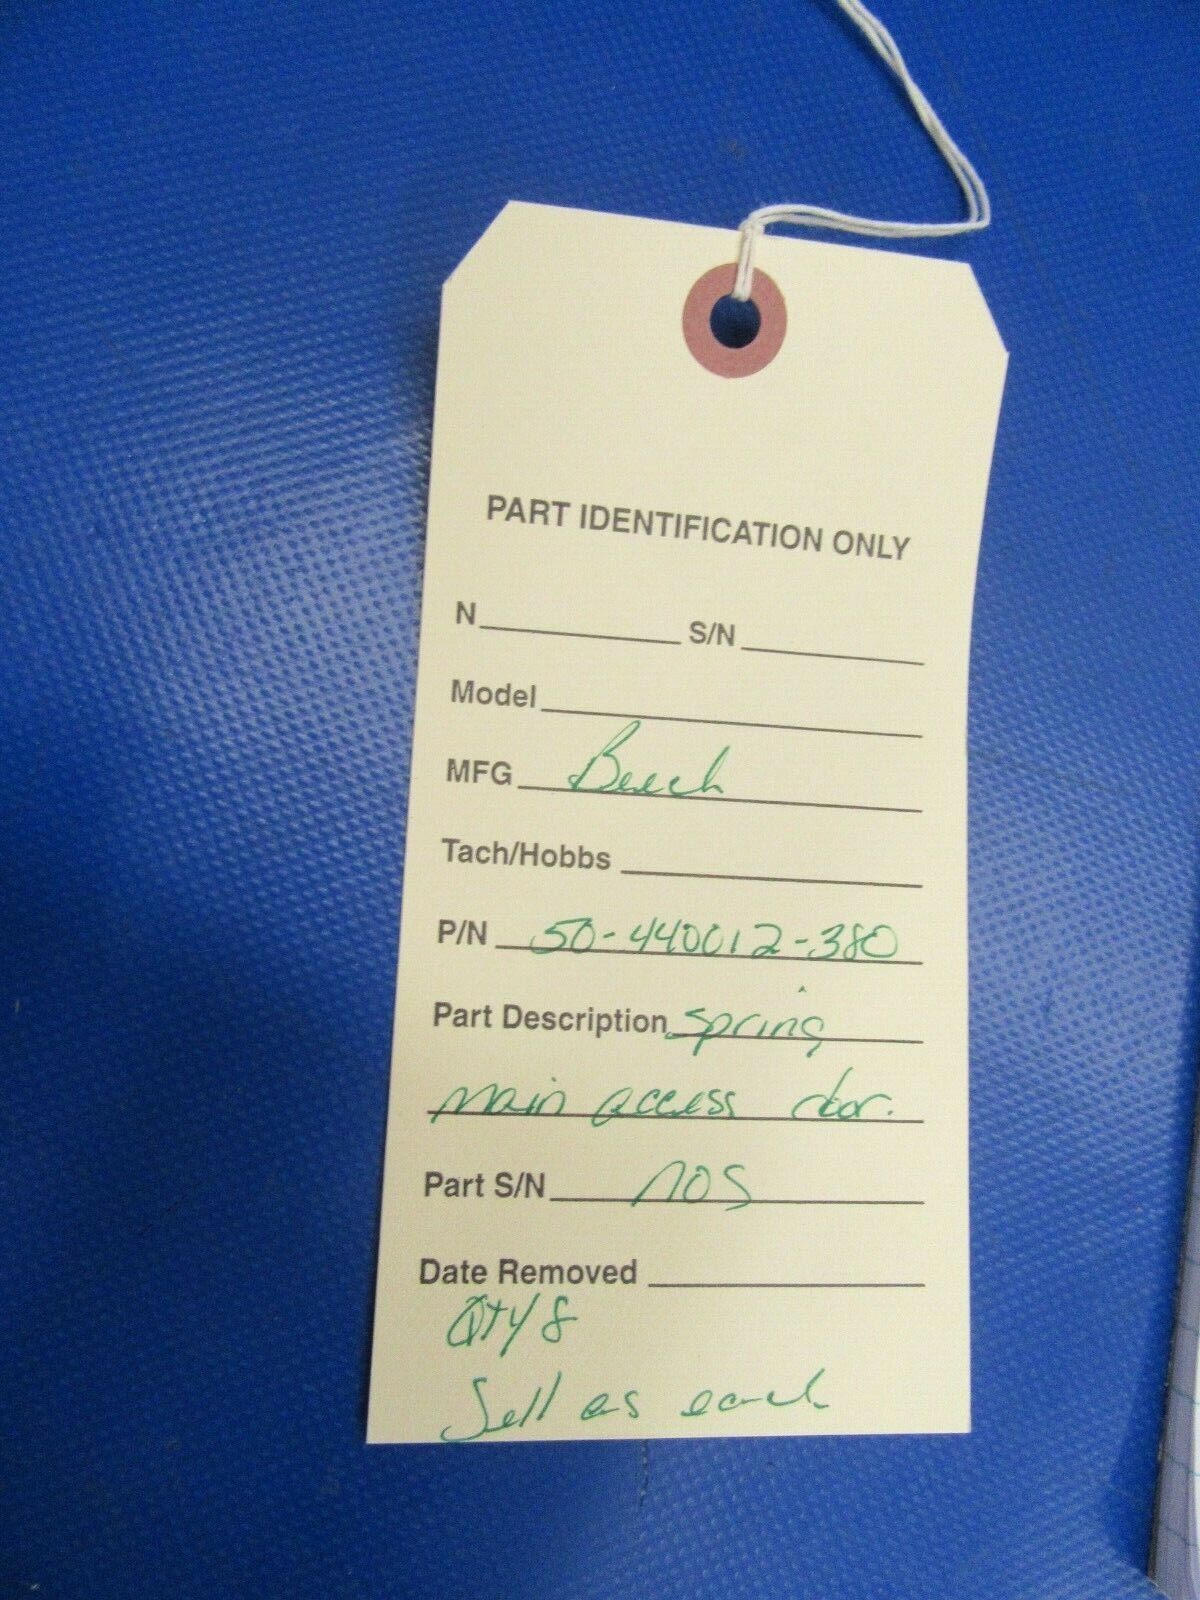 PART IDENTIFICATION ONLY
N__________ S/N__________
Model__________
MFG Beech
Tach/Hobbs__________
P/N 50-440012-380
Part Description Spring
main access door.
Part S/N NOS
Date Removed__________
QTY 8
Sell as each